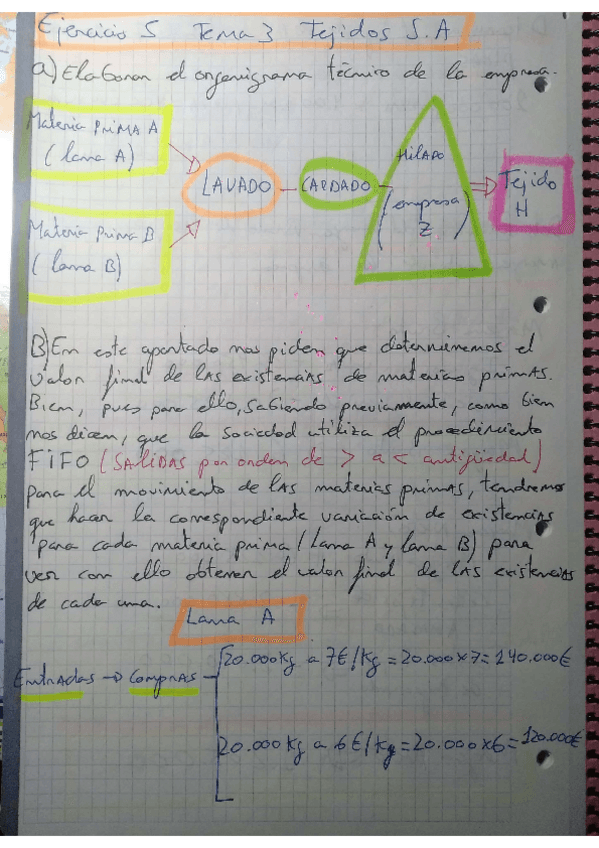 Ejercicio 5 Tema 3 Tejidos S.A
a) Elaboran el organigrama técnico de la empresa.
Materia PRIMA A
(lana A)
LAVADO
CARDADO
HILADO
(empresa Z)
Tejido H
Materia Prima B
(lana B)
B) En este apartado nos piden que determinemos el
valor final de las existencias de materias primas.
Bien, pues para ello, sabiendo previamente, como bien
nos dicen, que la sociedad utiliza el procedimiento
FIFO (SALIDAS por orden de > a < antigüedad)
para el movimiento de las materias primas, tendremos
que hacer la correspondiente variación de existencias
para cada materia prima (lana A y lana B) para
ver con ello obtener el valor final de las existencias
de cada una.
Lana A
Entradas → Compras
20.000kg a 7€/kg = 20.000 x 7 = 140.000€
20.000 kg a 6€/kg = 20.000 x 6 = 120.000€